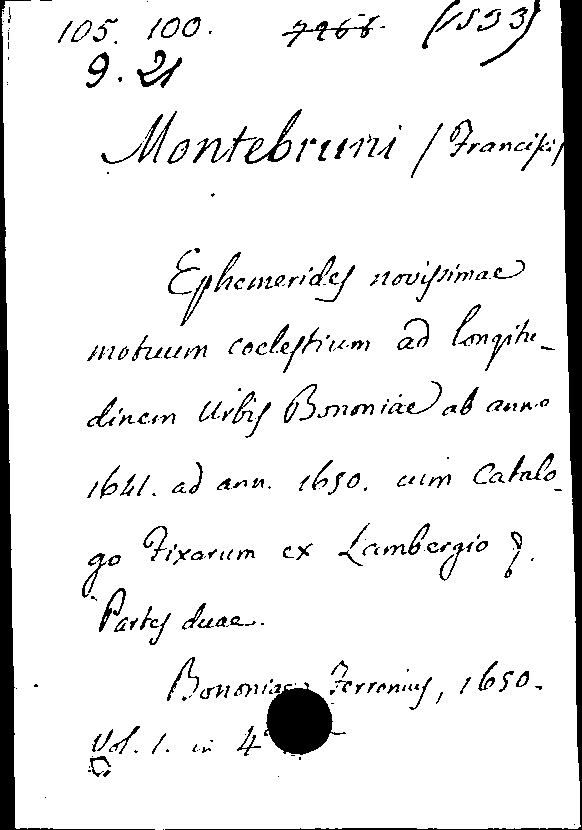 105. 100. 7266 (1533)
9. 21
Montebruni / Francisci /
Ephemerides novissimae
motuum coelestium ad longitu-
dinem Urbis Bononiae ab anno
1641. ad ann. 1650. cum Catalo-
go Fixarum ex Lambergio &.
Partes duae.
Bononiae, Ferronius, 1650.
Vol. 1. in 4°